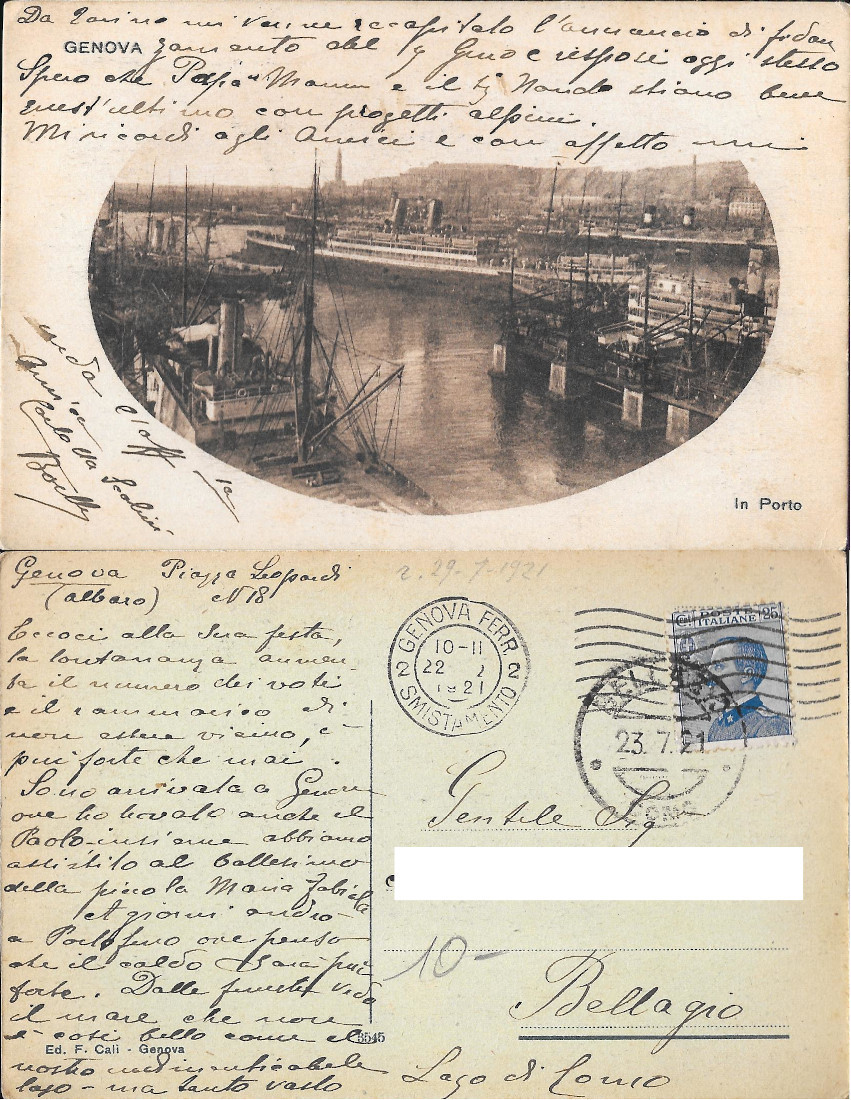 Da Torino mi venne recapitato l'annuncio di fidan
GENOVA
zamento del g Geno e risposi oggi stesso
Spero che Papà Mamma e il Nando stiano bene
quest'ultimo con progetti alpini.
Mi ricordi agli Amici e con affetto mi
creda l'aff
amica
Carlotta
In Porto
Genova Piazza Leopardi
(albaro) N 18
Eccoci alla Sua festa,
la lontananza aumen-
ta il numero dei voti
e il rammarico di
non essere vicino, è
più forte che mai.
Sono arrivata a Genova
ove ho trovato anche il
Paolo - insieme abbiamo
assistito al battesimo
della piccola Maria Fabiola
A giorni andrò
a Portofino ove penso
che il caldo sarà più
forte. Dalle finestre vedo
il mare che non
è così bello come el
nostro indimenticabile
lago - ma tanto vasto
Ed. F. Cali - Genova
3545
r. 29-7-1921
GENOVA FERR.
10-11
22 1921
2 SMISTAMENTO 2
POSTE ITALIANE
Cent 25
BELLAGIO
23.7.21
COMO
Gentile Sig
10-
Bellagio
Lago di Como